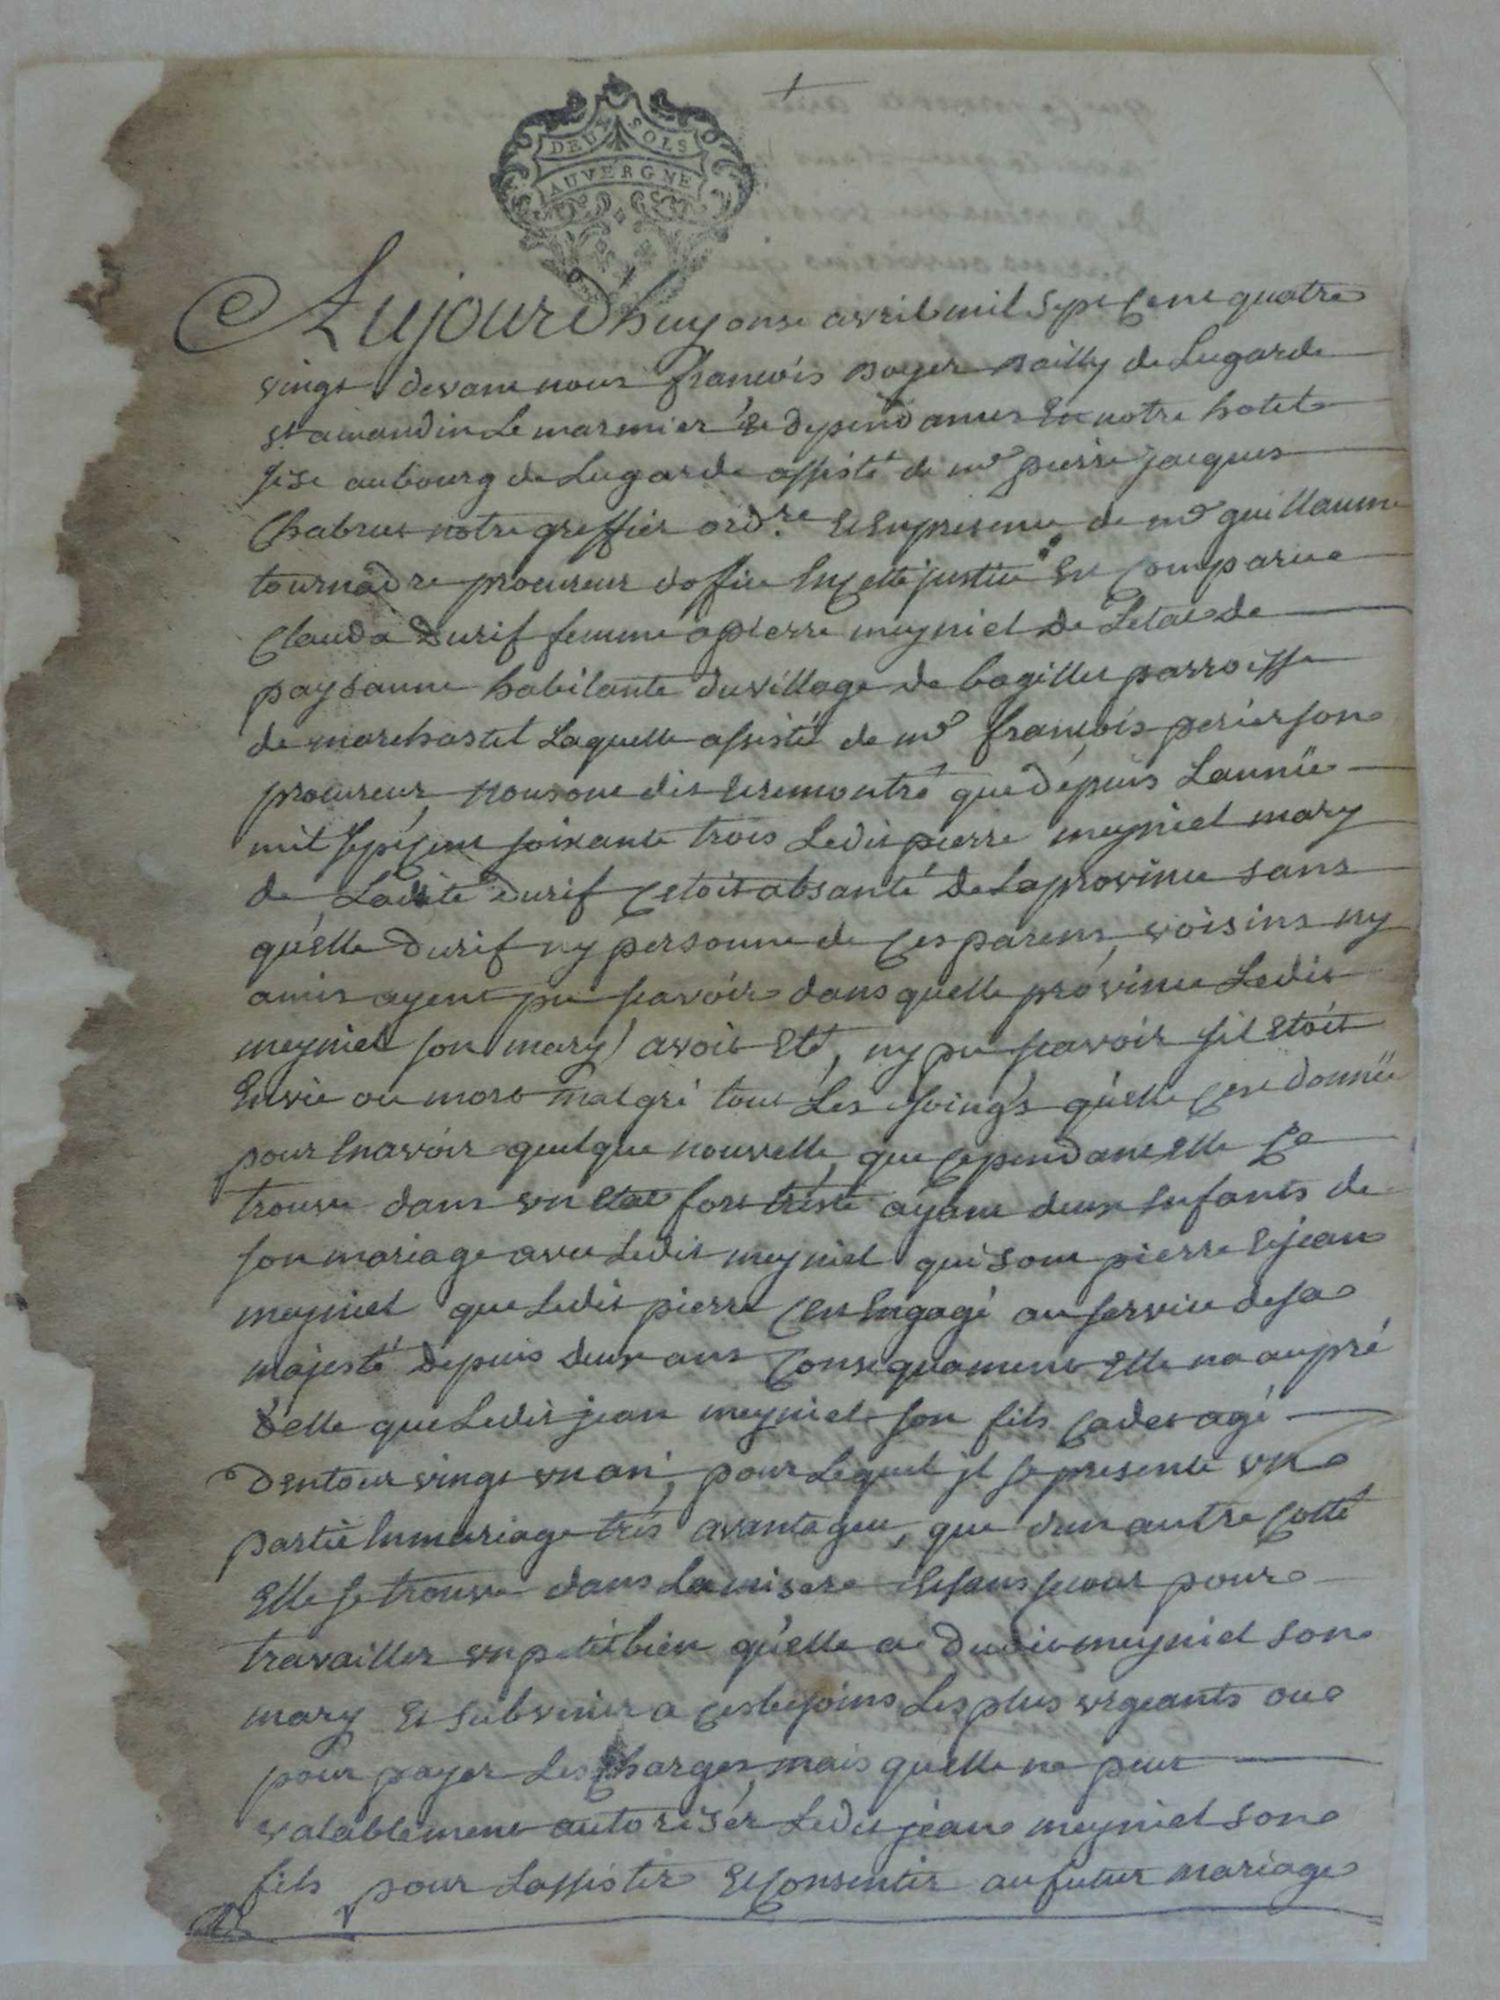 DEUX SOLS
AUVERGNE
Aujourd'huy onse avril mil sept Cent quatre
vingt devant nous françois boyer bailly de Lugarde
st amandin Le marmier & dependances En notre hotel
size au bourg de Lugarde assisté de me pierre jacques
Chabrus notre greffier ordre. & En presence de me guillaume
tournadre procureur doffice En Cette justice Est Comparue
Clauda Durif femme a pierre meyniel de L'etat de
paysanne habitante du village de bagilles parroisse
de marchastel Laquelle assisté de me françois perier son
procureur, nous ont dit & remontré que depuis L'année
mil sept Cent soixante trois Ledit pierre meyniel mary
de Ladite Durif C'etoit absanté de La province sans
qu'elle Durif ny personne de Ces parens, voisins ny
amis ayent pu scavoir dans quelle province Ledit
meyniel son mary avoit Eté, ny pu scavoir s'il Etoit
En vie ou mort malgré tout Les soings qu'elle C'est donnée
pour En avoir quelque nouvelle, que Cependant Elle Ce
trouve dans un Etat fort triste ayant deux Enfants de
son mariage avec Ledit meyniel qui sont pierre & jean
meyniel que Ledit pierre C'est Engagé au service de sa
majesté depuis deux ans Consequament Elle na aupré
d'elle que Ledit jean meyniel son fils Cadet agé
d'entour vingt un an, pour Lequel il se presente une
partie En mariage très avantageu, que d'un autre Cotté
Elle se trouve dans La misere & sans secour pour
travailler un petit bien qu'elle a dudit meyniel son
mary & subvenir a Ces besoins Les plus urgeants ou
pour payer Les Charges, mais qu'elle ne peut
valablement autoriser Ledit jean meyniel son
fils pour L'assister & Consentir au futur mariage